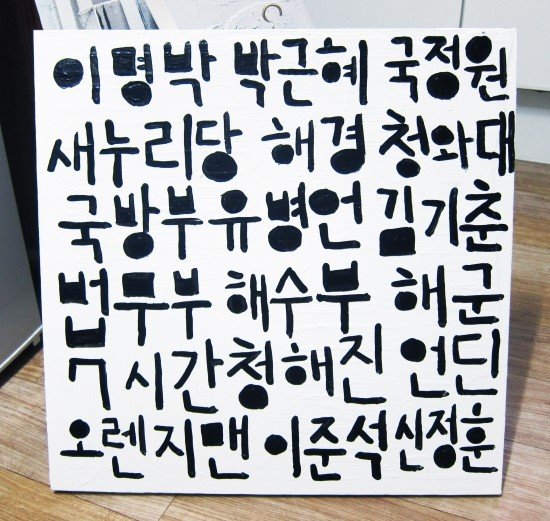 이명박 박근혜 국정원
새누리당 해경 청와대
국방부 유병언 김기춘
법무부 해수부 해군
7시간 청해진 언딘
오렌지맨 이준석 신정훈